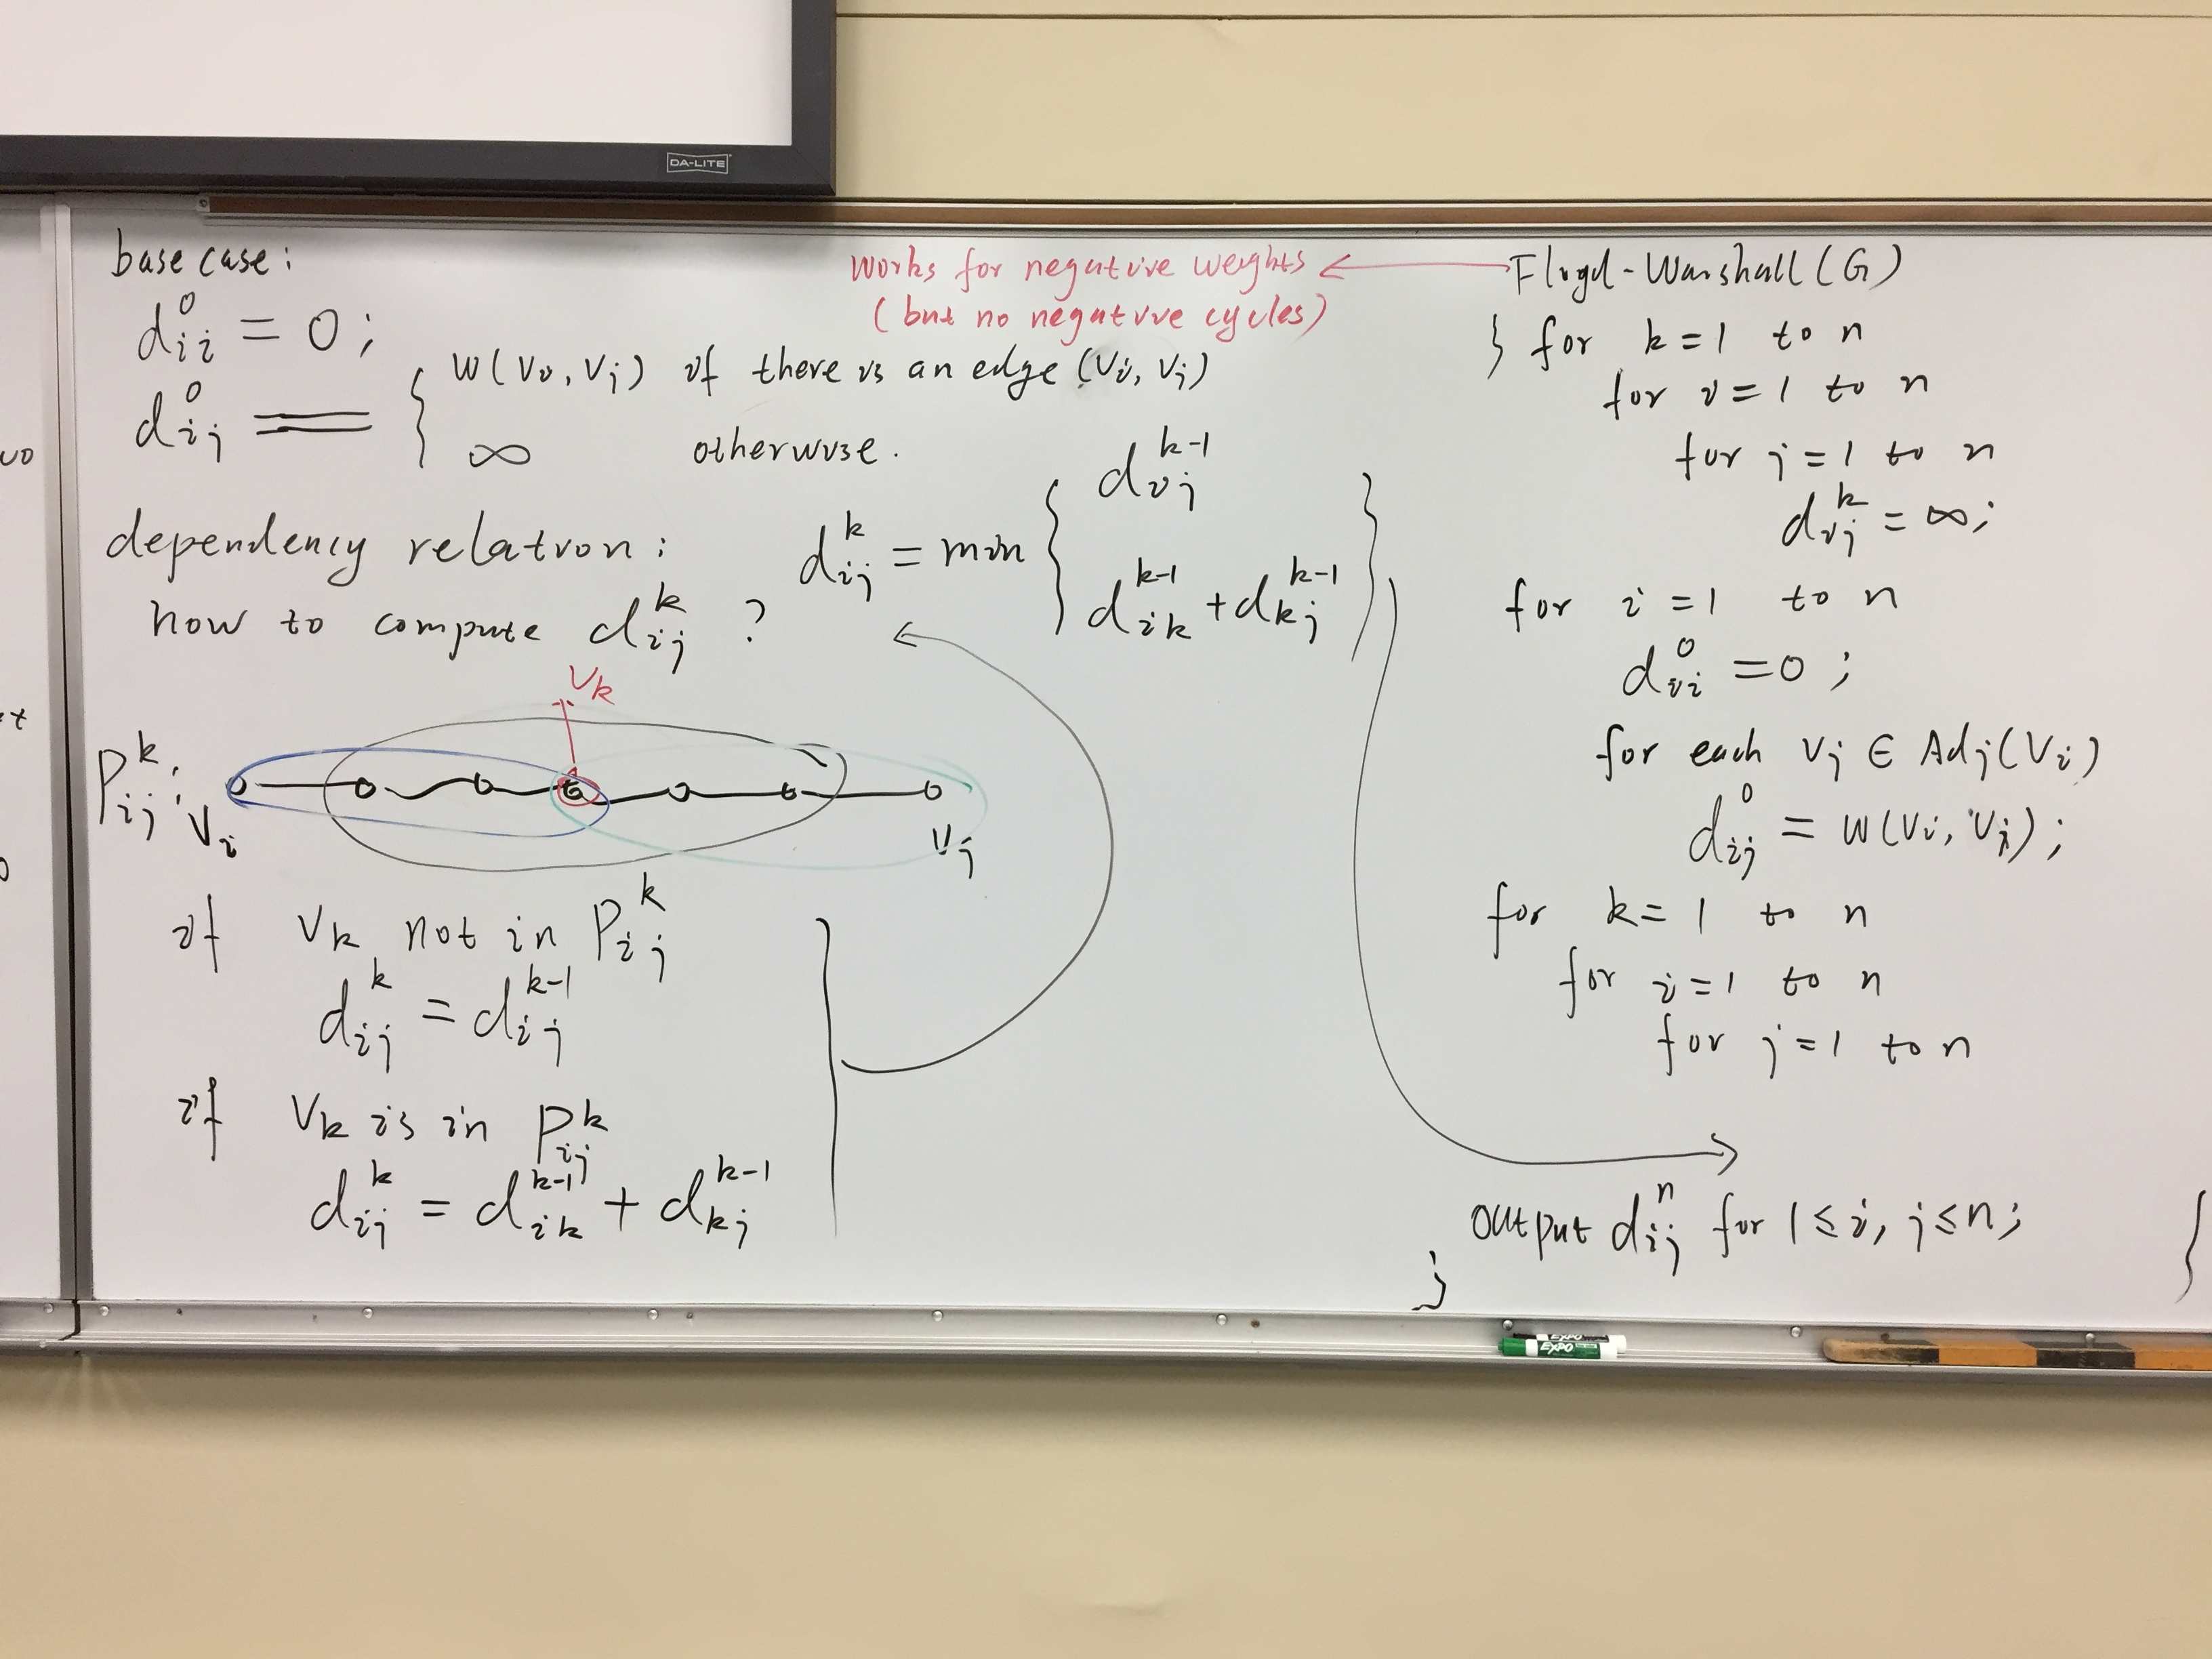 DA-LITE
base case:
d⁰ᵢᵢ = 0;
d⁰ᵢⱼ = { w(vᵢ, vⱼ) if there is an edge (vᵢ, vⱼ)
∞ otherwise.
dependency relation:
how to compute dᵏᵢⱼ ?
dᵏᵢⱼ = min { dᵏ⁻¹ᵢⱼ
dᵏ⁻¹ᵢₖ + dᵏ⁻¹ₖⱼ }
vₖ
Pᵏᵢⱼ:
vᵢ
vⱼ
if vₖ not in Pᵏᵢⱼ
dᵏᵢⱼ = dᵏ⁻¹ᵢⱼ
if vₖ is in Pᵏᵢⱼ
dᵏᵢⱼ = dᵏ⁻¹ᵢₖ + dᵏ⁻¹ₖⱼ
works for negative weights
(but no negative cycles)
Floyd-Warshall(G)
{ for k=1 to n
for i=1 to n
for j=1 to n
dᵏᵢⱼ = ∞;
for i=1 to n
d⁰ᵢᵢ = 0;
for each vⱼ ∈ Adj(vᵢ)
d⁰ᵢⱼ = w(vᵢ, vⱼ);
for k=1 to n
for i=1 to n
for j=1 to n
output dⁿᵢⱼ for 1≤i, j≤n;
}
EXPO
EXPO